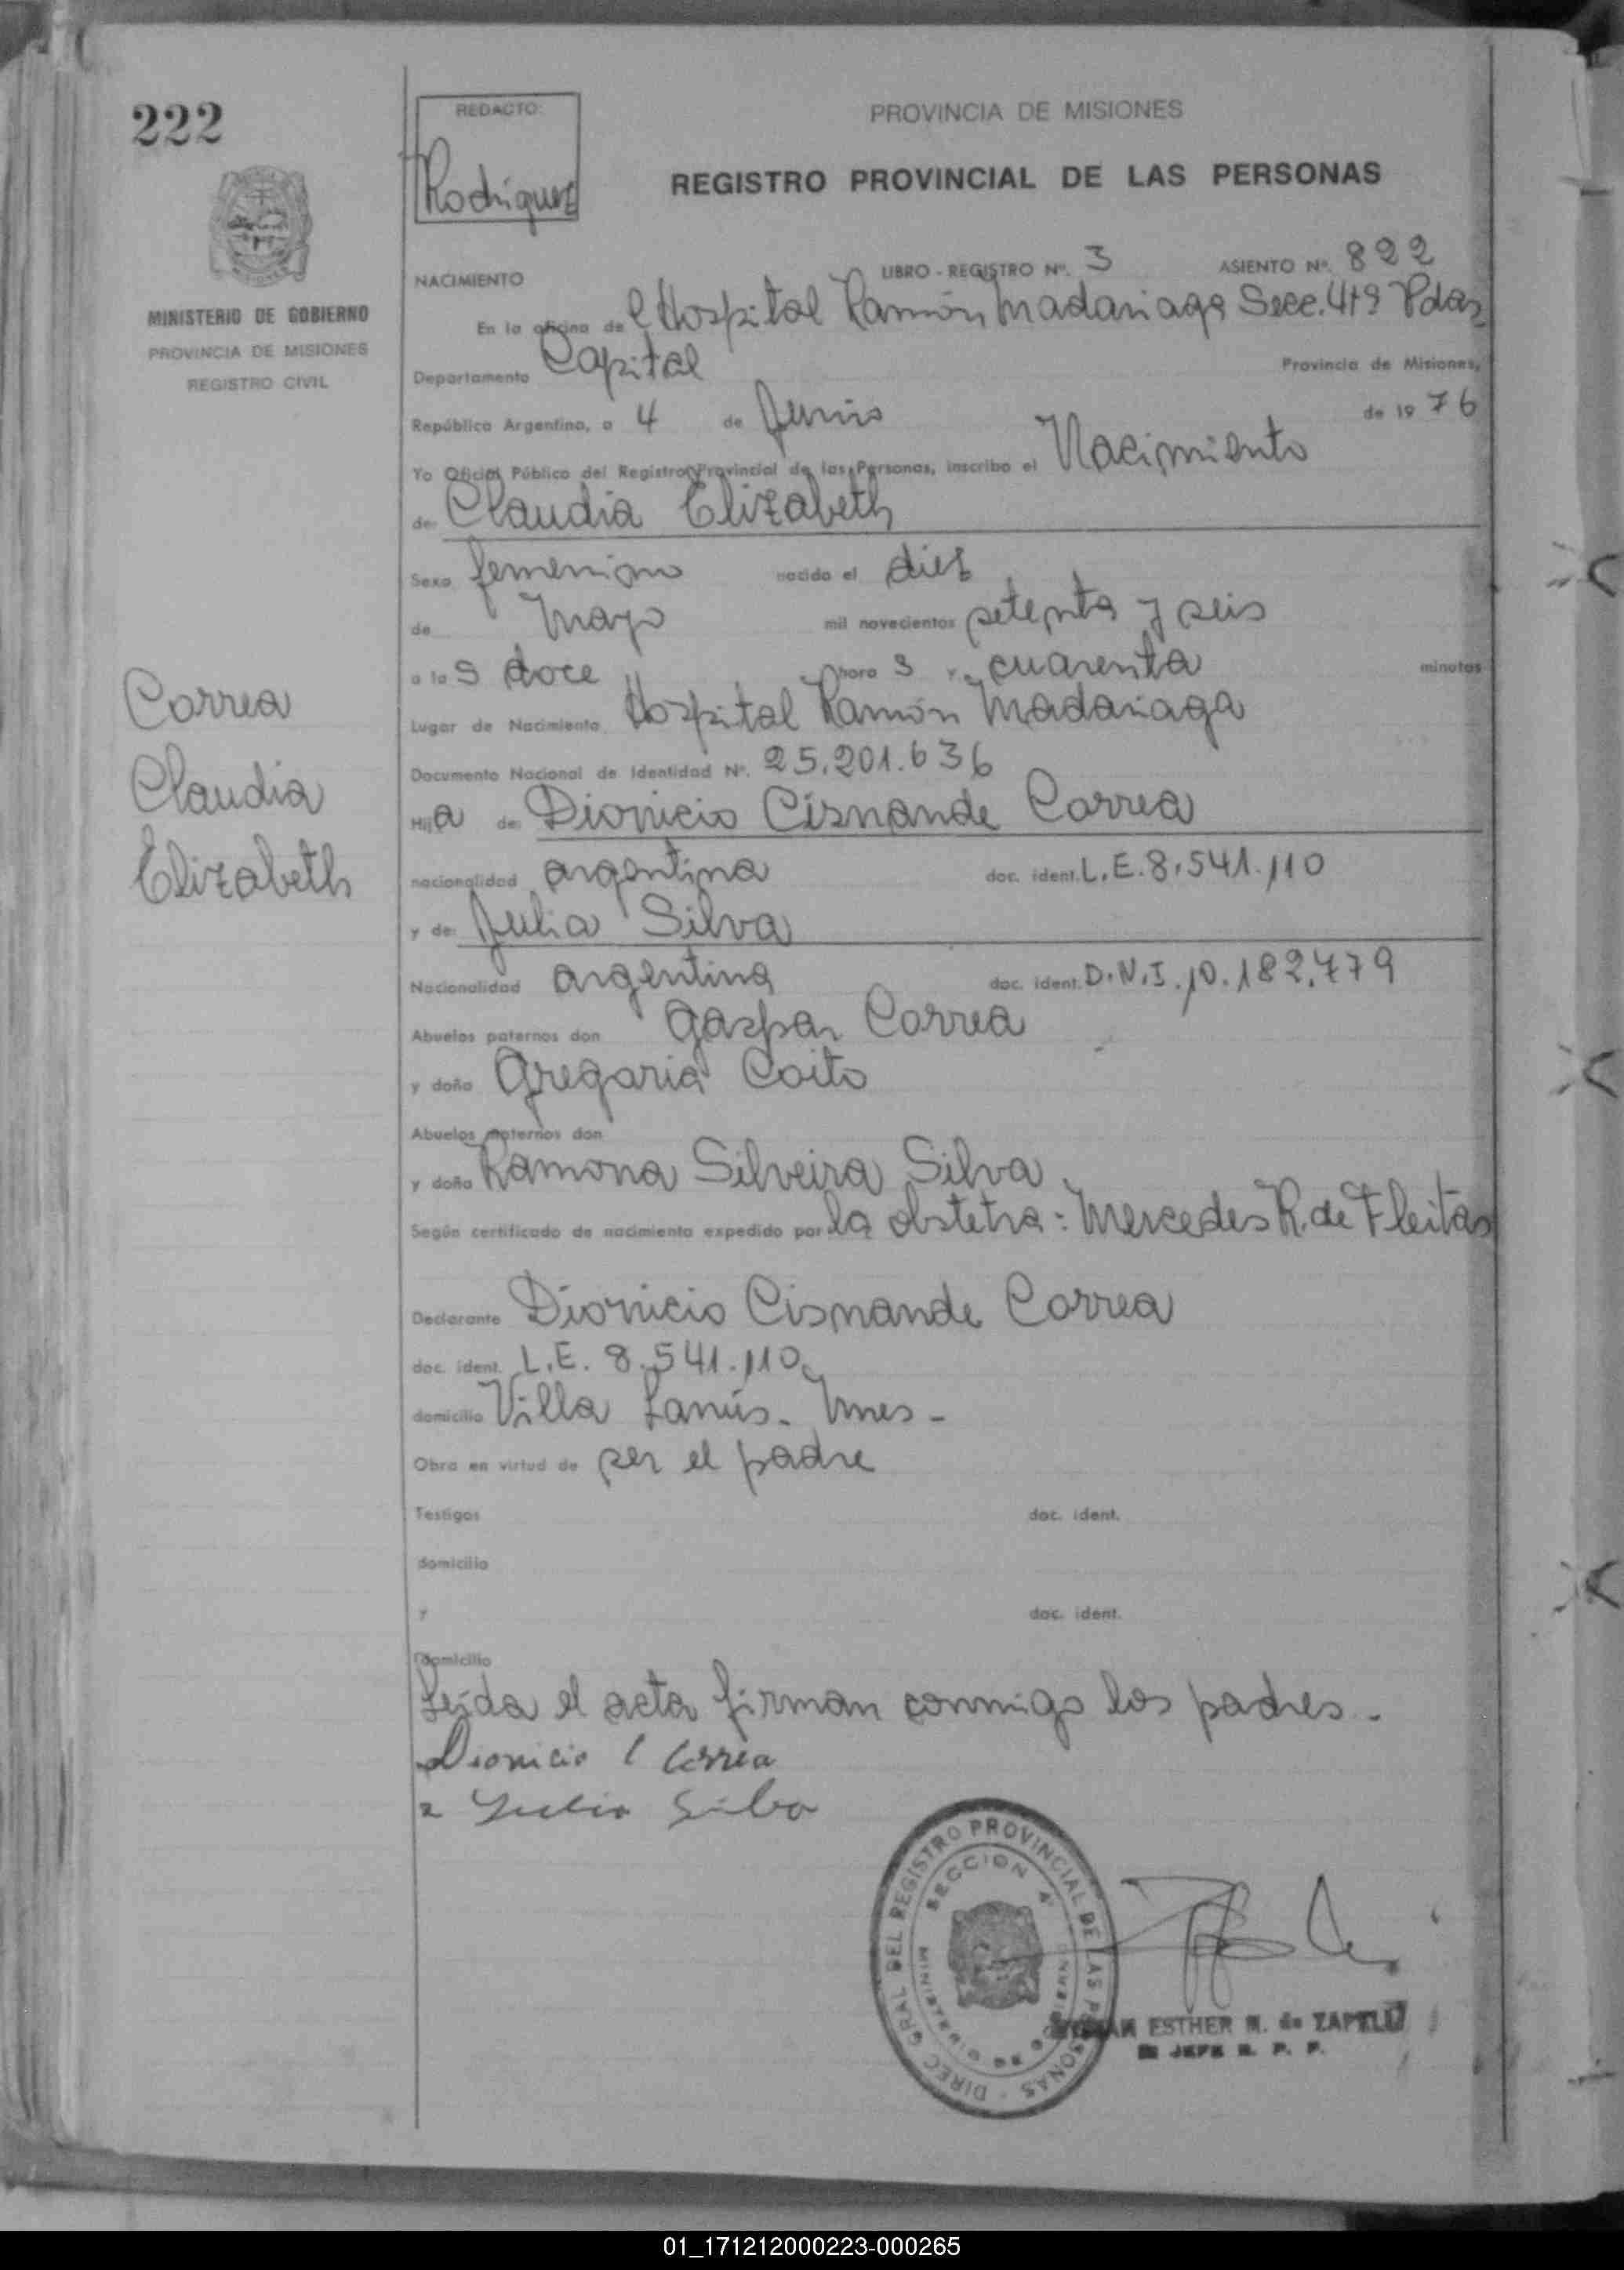 222
REDACTO:
Rodriguez
PROVINCIA DE MISIONES
REGISTRO PROVINCIAL DE LAS PERSONAS
MINISTERIO DE GOBIERNO
PROVINCIA DE MISIONES
REGISTRO CIVIL
NACIMIENTO LIBRO - REGISTRO Nº. 3 ASIENTO Nº. 822
En la oficina del Hospital Ramón Madariaga Secc. 4ta Pdas
Departamento Capital Provincia de Misiones,
República Argentina, a 4 de Junio de 19 76
Yo Oficial Público del Registro Provincial de las Personas, inscribo el Nacimiento
de: Claudia Elizabeth
Sexo femenino nacido el diez
de Mayo mil novecientos setenta y seis
a las doce hora s y cuarenta minutos
Lugar de Nacimiento Hospital Ramón Madariaga
Documento Nacional de Identidad Nº. 25.201.636
Hija de: Dionicio Cisnande Correa
nacionalidad argentina doc. ident. L.E. 8.541.110
y de: Julia Silva
Nacionalidad argentina doc. ident. D.N.I. 10.182.479
Abuelos paternos don Gaspar Correa
y doña Gregaria Coito
Abuelos maternos don
y doña Ramona Silveira Silva
Según certificado de nacimiento expedido por la obstetra: Mercedes R. de Fleitas
Declarante Dionicio Cisnande Correa
doc. ident. L.E. 8.541.110
domicilio Villa Lanús - Mnes -
Obra en virtud de ser el padre
Testigos doc. ident.
domicilio
y doc. ident.
Domicilio
Leída el acta firman conmigo los padres.
Dionicio C Correa
Julia Silva
Correa
Claudia
Elizabeth
DIREC. GRAL. DEL REGISTRO PROVINCIAL DE LAS PERSONAS
SECCION 4ª
ESTHER M. de ZAPELLI
JEFE R. P. P.
01_171212000223-000265